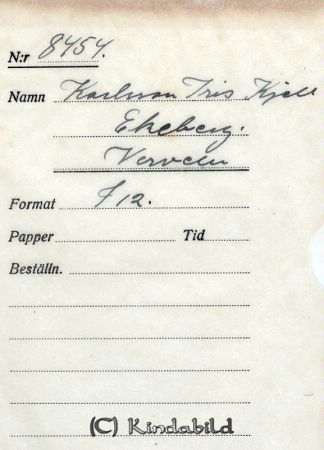 N:r 8454.
Namn Karlsson Iris Kjell
Ekeberg.
Verveln
Format f 12.
Papper Tid
Beställn.
(C) Kindabild